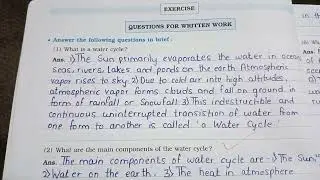 EXERCISE
QUESTIONS FOR WRITTEN WORK
• Answer the following questions in brief :
(1) What is a water cycle?
Ans. 1) The Sun primarily evaporates the water in ocean
seas, rivers, lakes and ponds on the earth Atmospheric
vapor rises to sky. 2) Due to cold air into high altitudes,
atmospheric vapor forms clouds and fall on ground in
form of rainfall or Snowfall 3) This indestructible and
continuous uninterrupted transistion of water from
one form to another is called 'a Water Cycle'
(2) What are the main components of the water cycle?
Ans. The main components of water cycle are -1) The Sun,
2) Water on the earth. 3) The heat in atmosphere